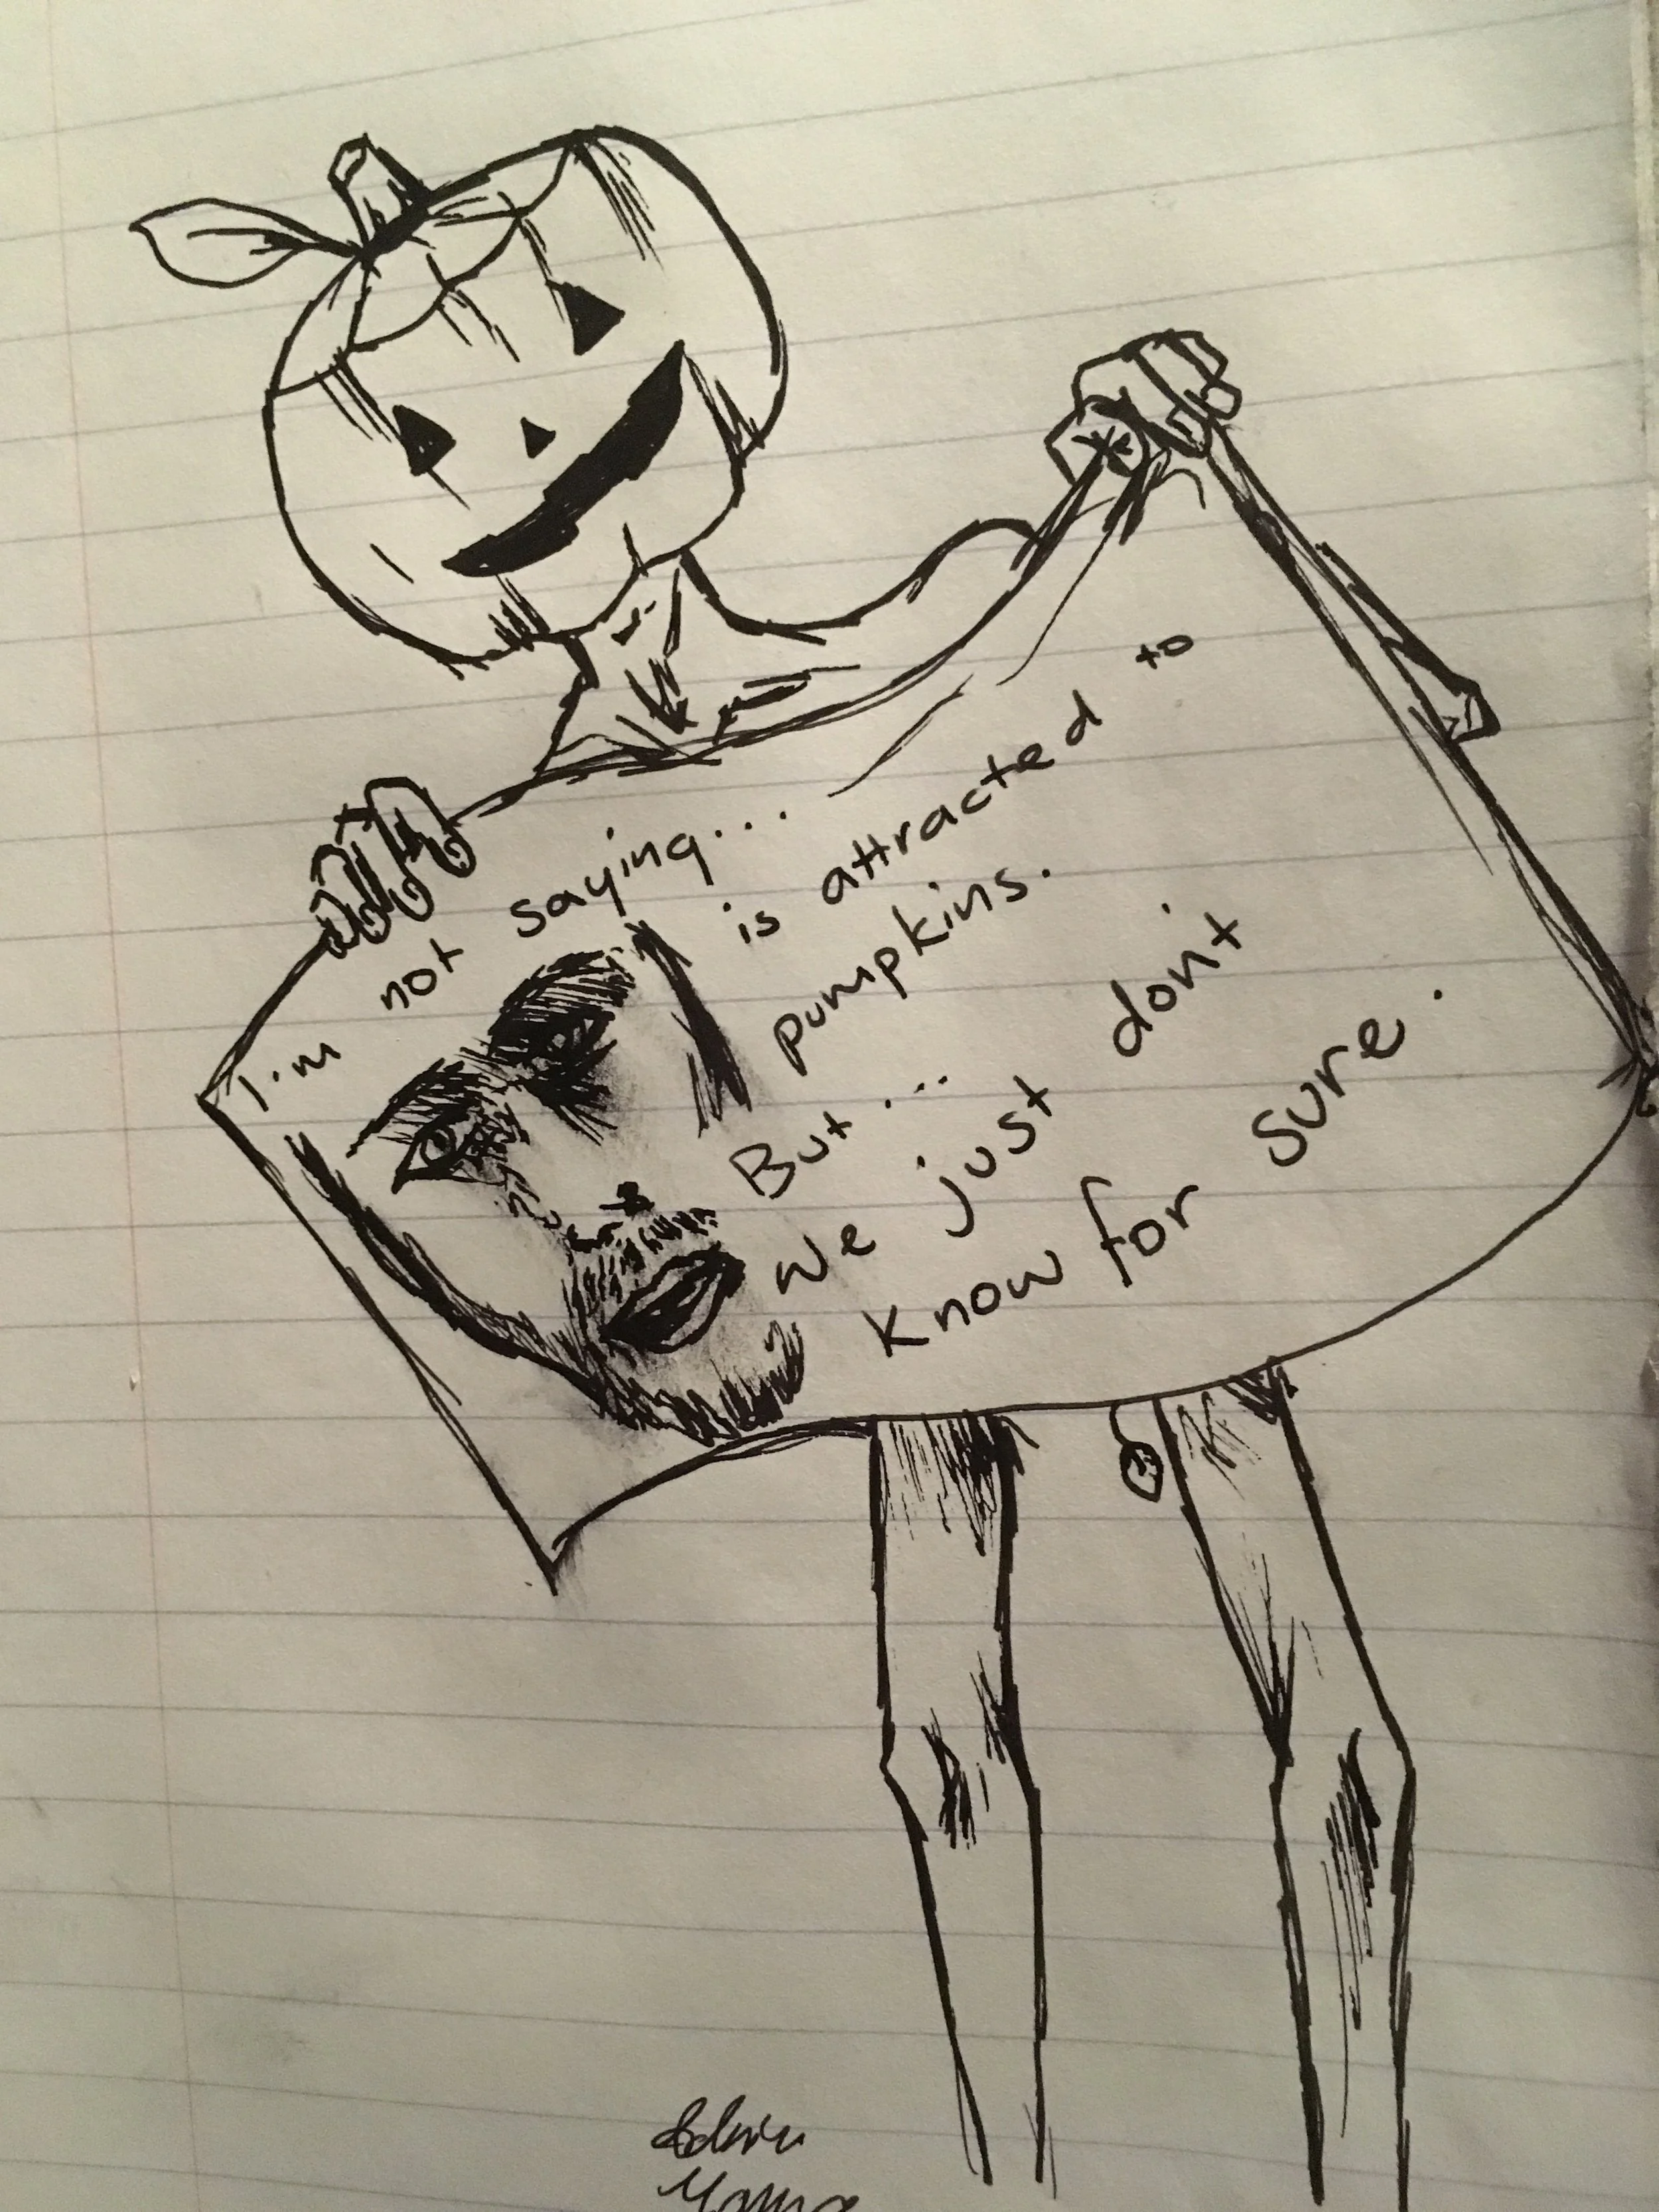 I'm not saying...
is attracted to
pumpkins.
But...
we just don't
know for sure.